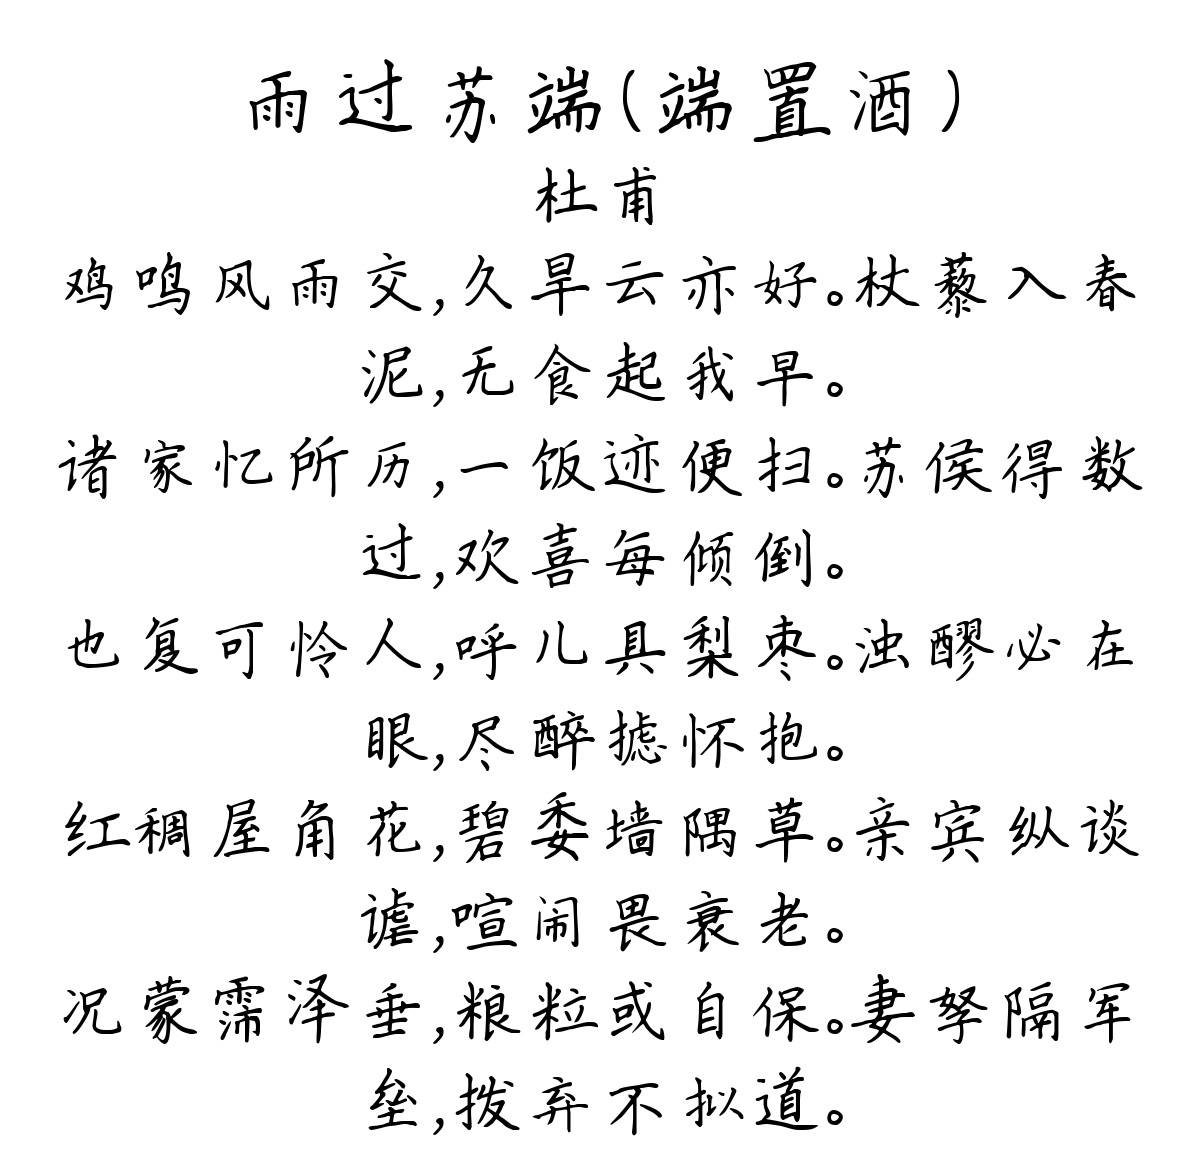 雨过苏端(端置酒)
杜甫
鸡鸣风雨交,久旱云亦好。杖藜入春
泥,无食起我早。
诸家忆所历,一饭迹便扫。苏侯得数
过,欢喜每倾倒。
也复可怜人,呼儿具梨枣。浊醪必在
眼,尽醉摅怀抱。
红稠屋角花,碧委墙隅草。亲宾纵谈
谑,喧闹畏衰老。
况蒙霈泽垂,粮粒或自保。妻孥隔军
垒,拨弃不拟道。